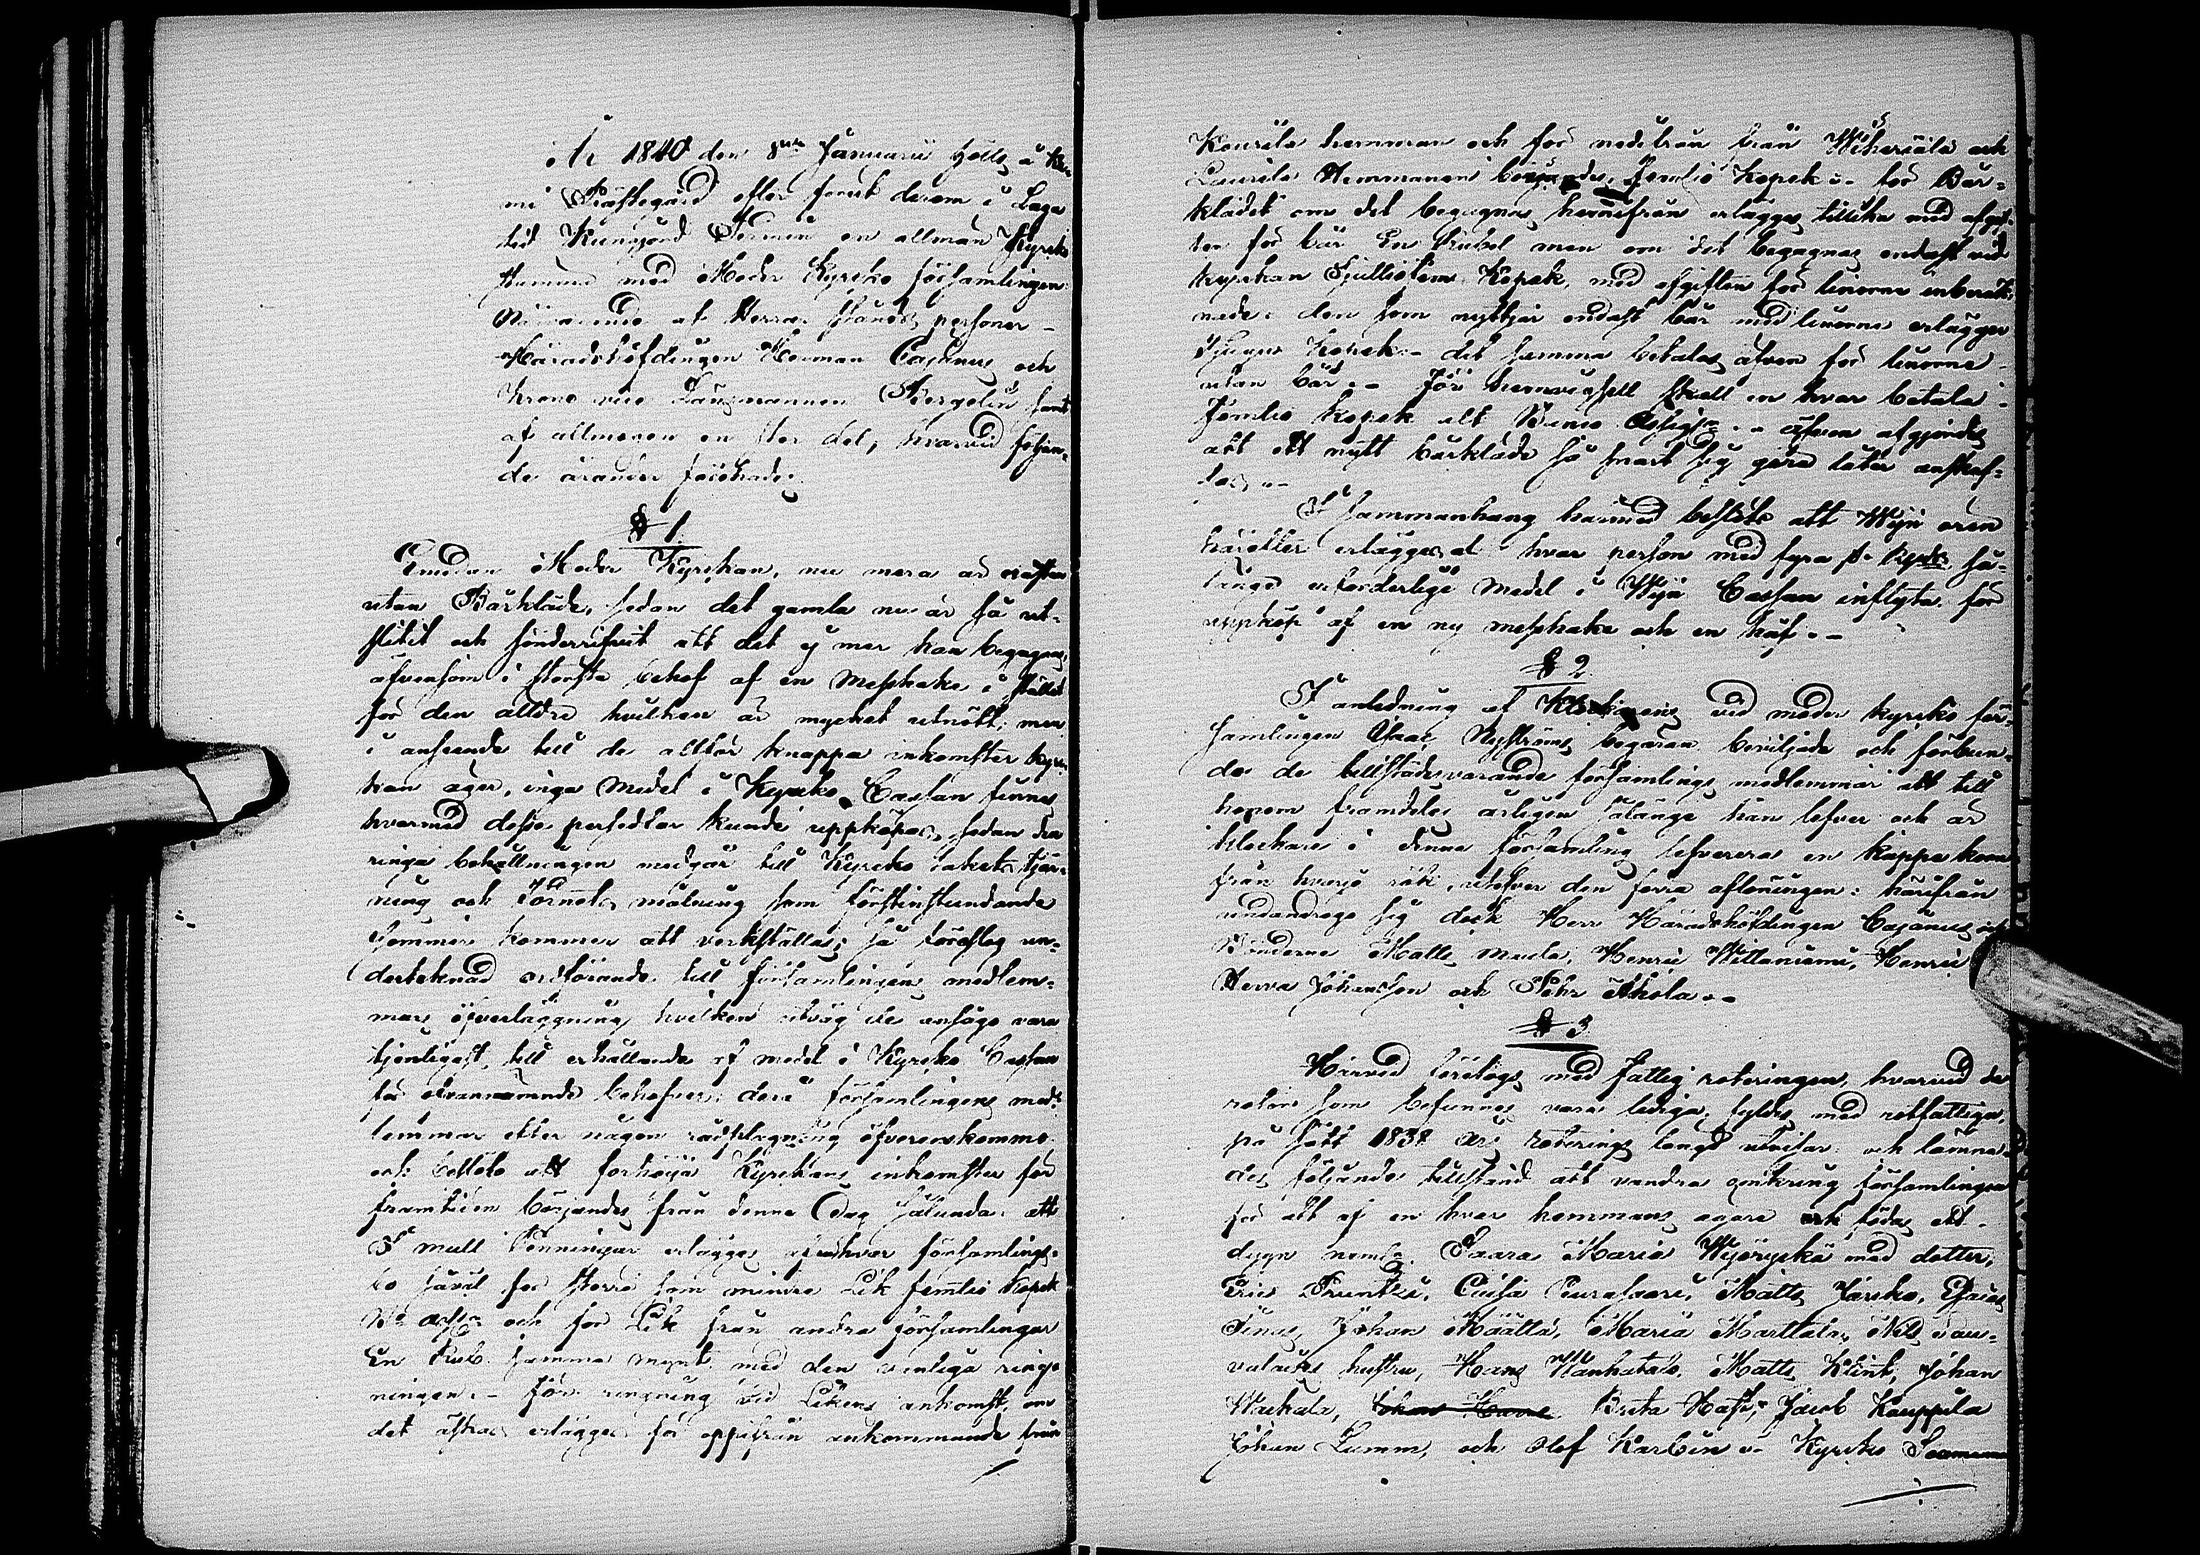 År 1840 den 8de Januarii hölls å Ke-
mi Prästegård efter förut derom i Laga
tid Kungjord Termin en allmän Kyrko
Stämma med Moder Kyrko församlingen
Närvarande af Herrar Stånds personer
Häradshöfdingen Herman Cajanus och
Krono vice Länsmannen Bergelin samt
af allmogen en stor del, hvarvid följan-
de ärender förehades.
§ 1
Emedan Moder Kyrkan, nu mera är nästan
utan Bårkläde, sedan det gamla nu är så ut-
slitit och sönderrifvit att det ej mer kan begagnas,
äfvensom i största behof af en Messhake i stället
för den äldre hvilken är mycket utnött; men
i anseende till de alltför knappa inkomster kyr-
kan äger, inga medel i Kyrko Cassan finnes
hvarmed desse persedlar kunde uppköpas, sedan den
ringa behållningen medgår till Kyrko takets tjär-
ning och Tornets målning som förstinstundande
Sommar kommer att verkställas; så föreslog un-
dertecknad ordförande till församlingens medlem-
mars öfverläggning hvilken utväg de ansågo vara
tjenligast, till erhållande af medel i Kyrko Cassan
för ofvannämnde behofver; derå församlingens med-
lemmar efter någon rådplägning öfverenskommo
och beslöto att förhöija Kyrkans inkomster för
framtiden börjandes från denna dag sålunda: att
I mull Penningar erlägges af hvar församlings-
bo såväl för större som mindre Lik femtio Kopek
B:co Ass:ner och för Lik från andra församlingar
En Rub. samma mynt, med den vanliga ring-
ningen. – För ringning vid Likens ankomst, om
det äskas erlägges för oppifrån ankommande från
Kourila hemman och för nedifrån från Wiheriälä och
Laurila Hemmanen börjandes, Femtio Kopek – för Bår-
klädet om det begagnas hemifrån erlägges tillika med afgif-
ten för bår En Rubel men om det begagnas endast vid
kyrkan Sjuttiofem Kopek, med afgiften för linorne inberäk-
nade: den som nyttjar endast bår med linorne erlägger
Tjugu Kopek – det samma betalas äfven för linorne
utan bår. – För hemvigsell skall en hvar betala
Femtio kopek allt Banco Assign. – äfven afgjordes
att ett nytt bårkläde så snart sig göra låter anskaf-
fas. –
I sammanhang härmed beslöts att Wijn ören
härefter erlägges af hvar person med fyra kopek så-
länge erforderlige medel i Wijn Cassan inflyta för
uppköp af en ny messhake och en håf. –
§ 2
I anledning af Klockarens vid moder kyrko för-
samlingen Isaac Nyströms begäran beviljade och förbun-
do de tillstädesvarande församlings medlemmar att till
honom framdeles årligen sålänge han lefver och är
klockare i denna församling lefverera en kappe korn
från hvarje rök, utöfver den förra aflöningen: härifrån
undandrogo sig dock Herr Häradshöfdingen Cajanus och
Bönderne Matts Muila, Henric Wittaniemi, Henric
Herva Johansson och Pehr Ahola. –
§ 3
Härvid företogs med Fattig roteringen, hvarvid de
rotar som befunnes vara lediga, fyldes med rotfattiga,
på sätt 1838 års roterings längd utvisar: och lämna-
des följande tillstånd att vandra omkring församlingen
för att af en hvar hemmans ägare födas ett
dygn neml. Saara Maria Wyöryckä med dotter,
Eric Prunttu, Caisa Peuralaari, Matts Jarsko, Esaias
Tenus, Johan Määttä, Maria Marttala, Nils Tau-
valaukis hustru, Hans Wanhatalo, Matts Klint, Johan
Waikala, Brita Hast, Jacob Kauppila
Johan Lumm, och Olof Karlbin – Kyrko